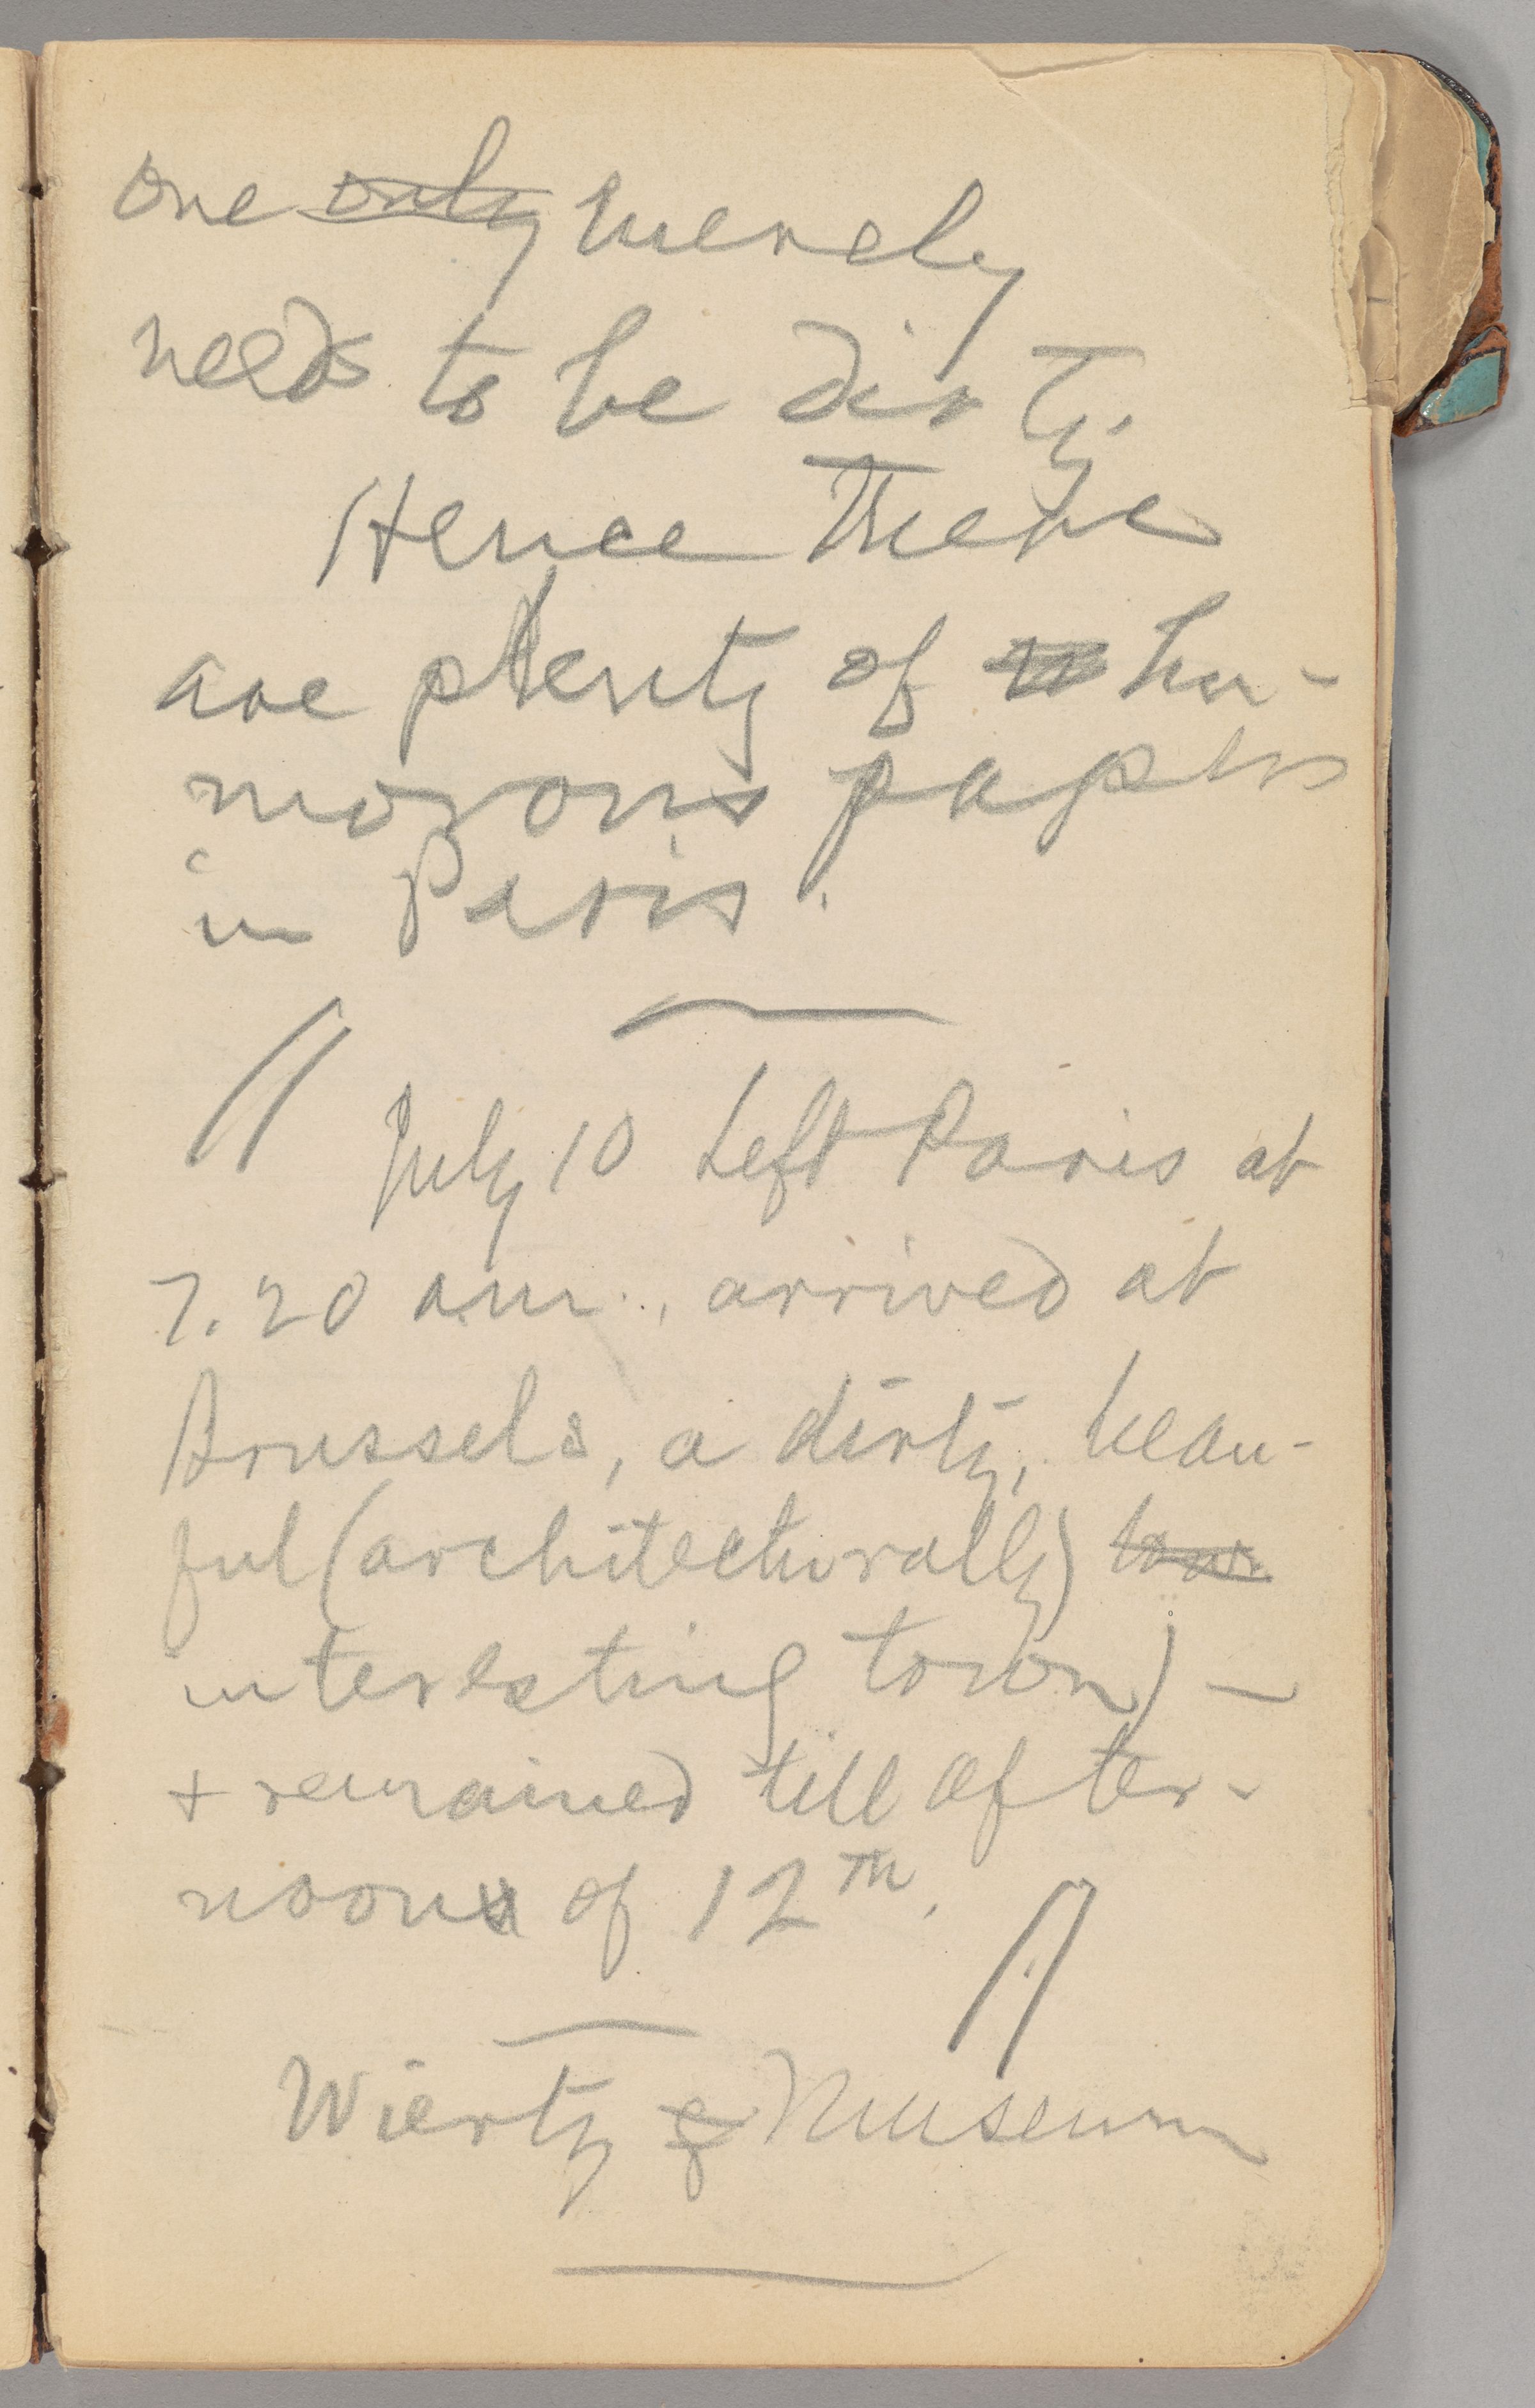 one only merely
needs to be dirty.
Hence there
are plenty of hu-
morous papers
in Paris.
July 10 Left Paris at
7.20 am., arrived at
Brussels, a dirty, beau-
ful (architecturally)
interesting town) —
+ remained till after-
noon of 12th.
Wiertz Museum